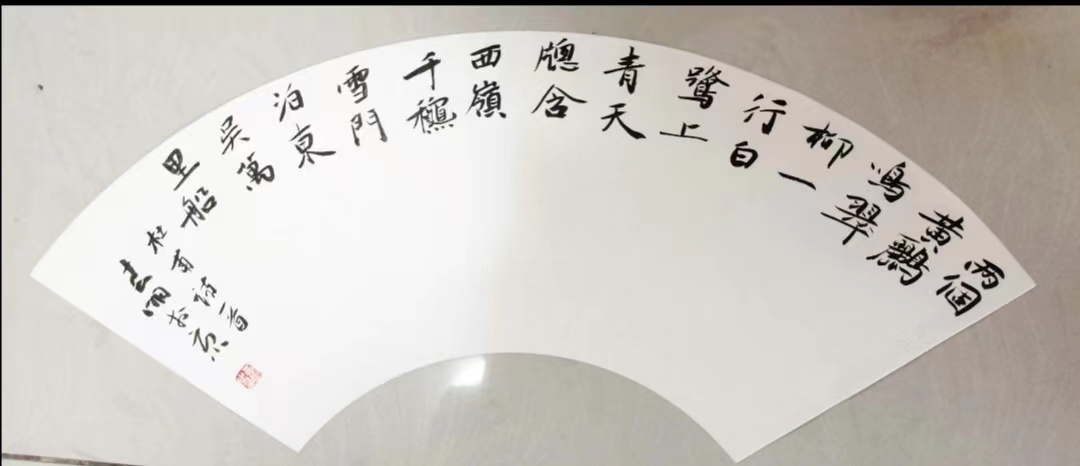 兩個
黃鸝
鳴翠
柳一
行白
鷺上
青天
牕含
西嶺
千穐
雪門
泊東
吳萬
里船
杜甫詩一首